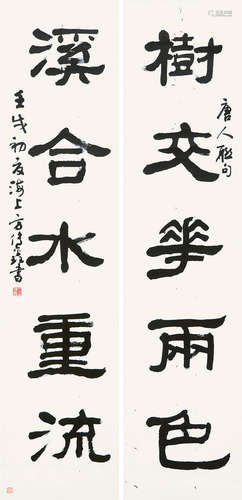 樹交花兩色
唐人聯句
溪合水重流
壬戌初夏海上方傳鑫書